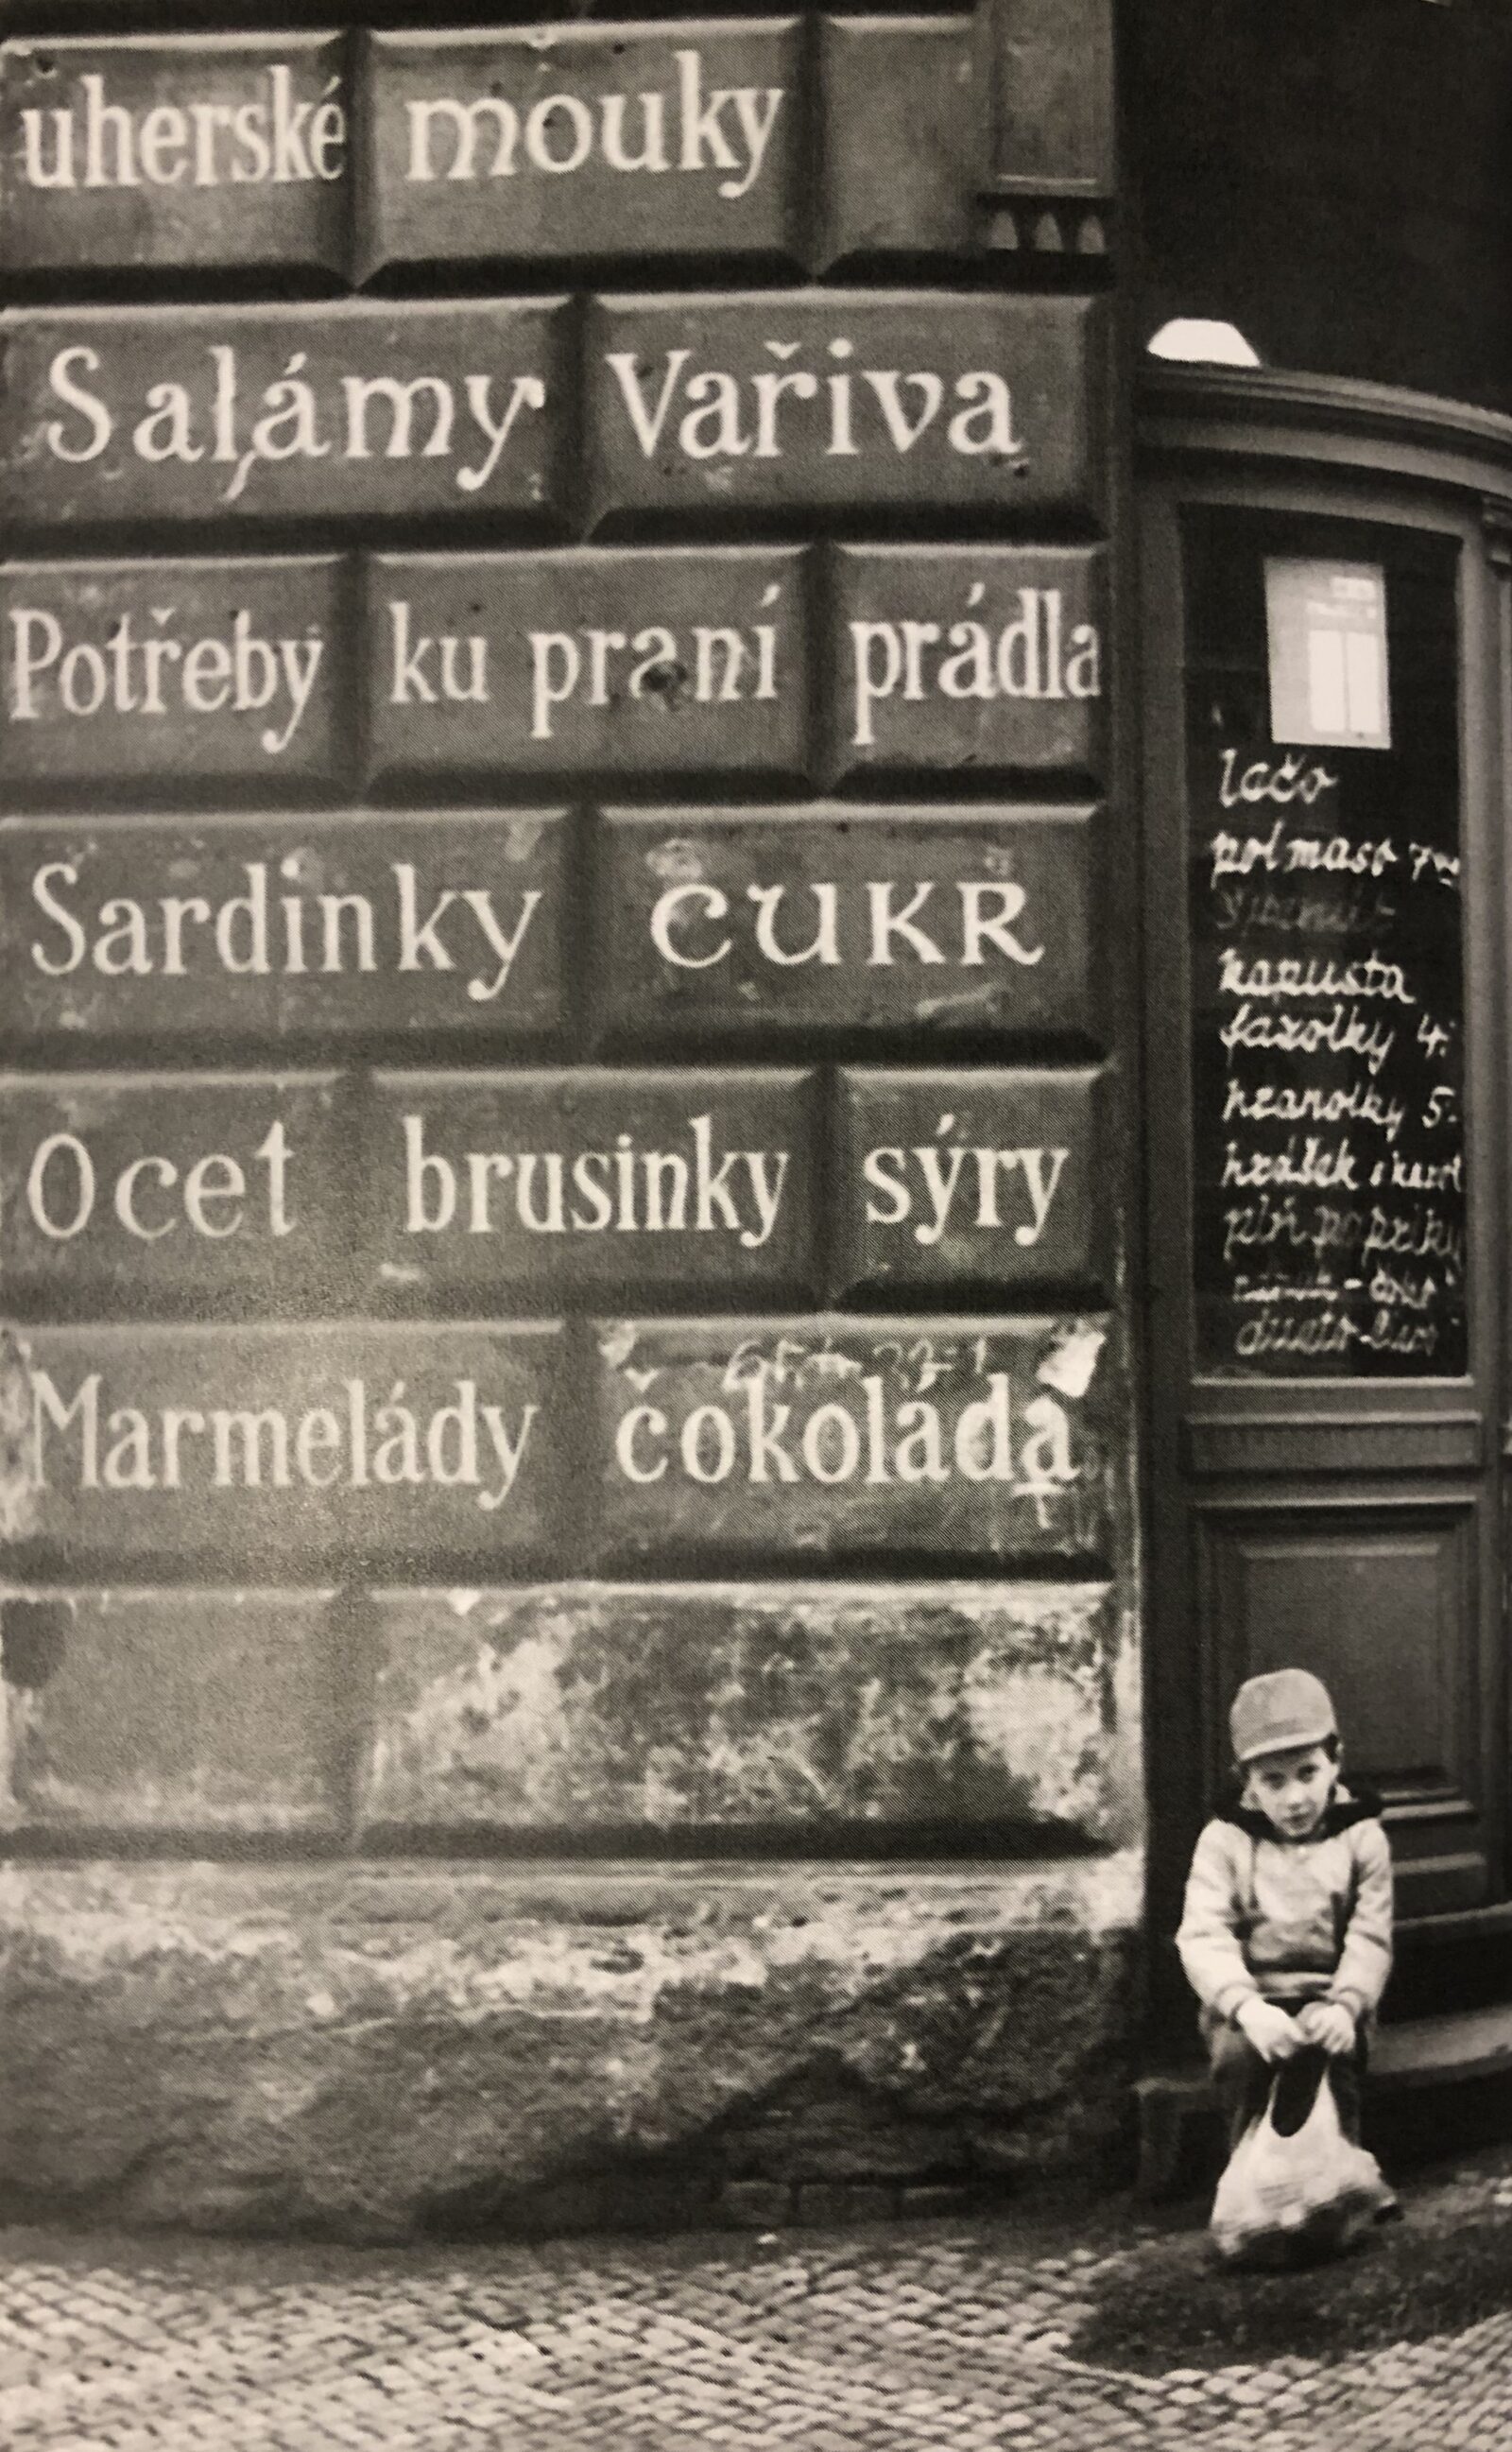 uherské mouky
Salámy Vařiva
Potřeby ku praní prádla
Sardinky CUKR
Ocet brusinky sýry
Marmelády čokoláda
lačo
pol maso
kapusta
fazolky 4:
hranolky 5.
hrášek s karot
pln papriky